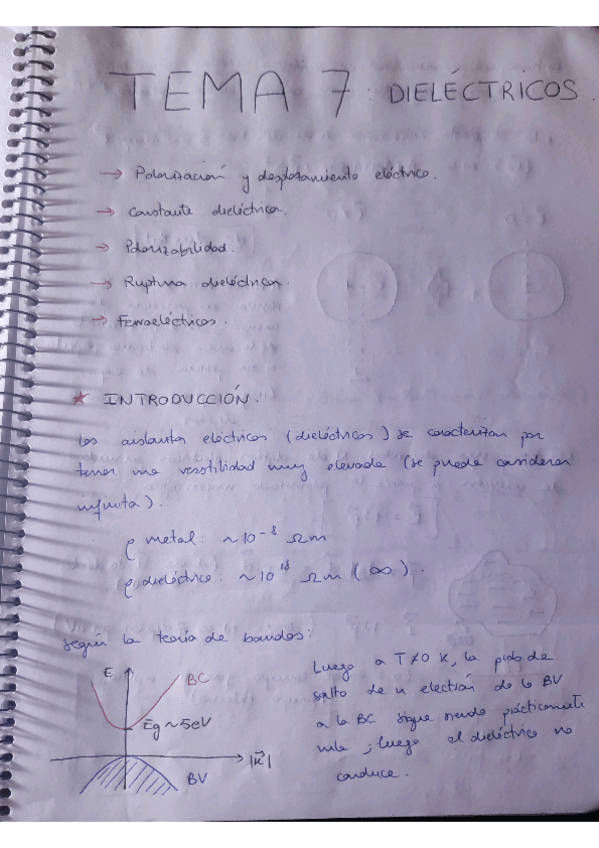 TEMA 7: DIELÉCTRICOS.
→ Polarización y desplazamiento eléctrico.
→ Constante dieléctrica.
→ Polarizabilidad.
→ Ruptura dieléctrica.
→ Ferroeléctricos.
★ INTRODUCCIÓN.
Los aislantes eléctricos (dieléctricos) se caracterizan por
tener una resistilidad muy elevada (se puede considerar
infinita).
ρ metal: ~10⁻⁸ Ωm
ρ dieléctrico: ~10¹⁸ Ωm (∞).
Según la teoría de bandas:
E
BC
Eg ~ 5eV
|k⃗|
BV
Luego a T≠0 K, la prob de
salto de un electrón de la BV
a la BC sigue siendo prácticamente
nula; luego el dieléctrico no
conduce.